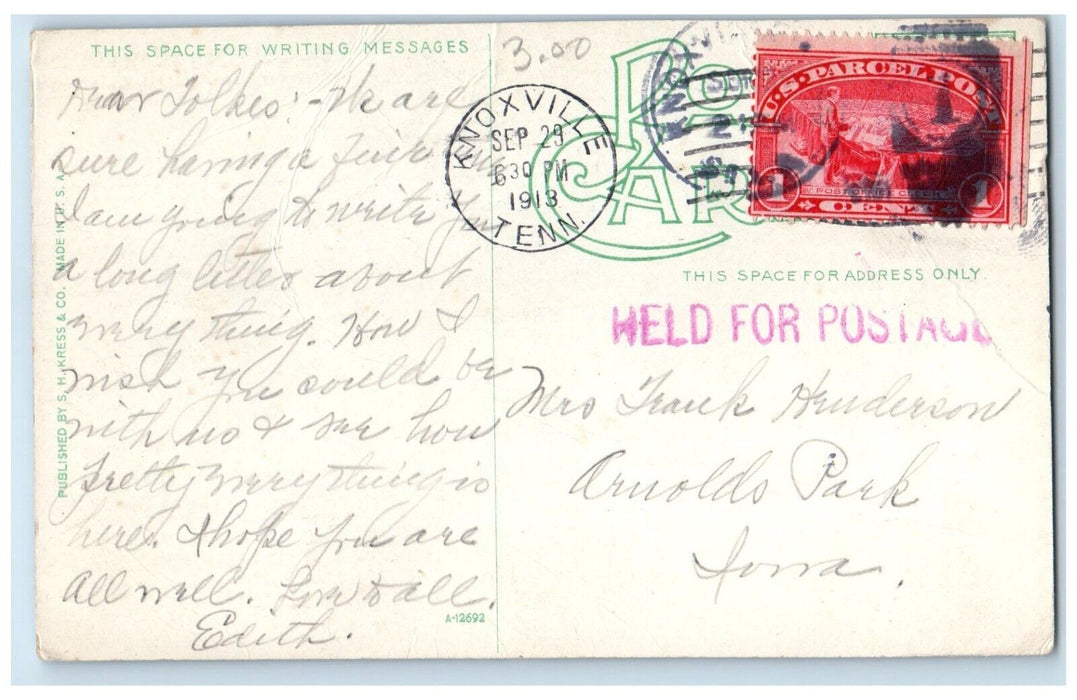 THIS SPACE FOR WRITING MESSAGES
3.00
POST CARD
Dear Folkes:- We are
sure having a fine
I am going to write you
a long letter about
every thing. How I
wish you could be
with us & see how
pretty every thing is
here. I hope you are
all well. Love to all.
Edith.
PUBLISHED BY S. H. KRESS & CO. MADE IN U. S. A.
A-12692
KNOXVILLE
SEP 29
630 PM
1913
TENN.
KNOXVILLE
SEP
U.S. PARCEL POST
POST OFFICE CLERK
1 CENT 1
THIS SPACE FOR ADDRESS ONLY.
HELD FOR POSTAGE
Mrs Frank Henderson
Arnolds Park
Iowa.